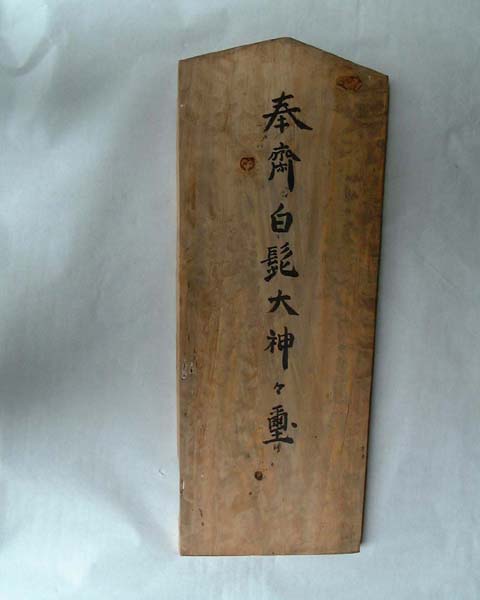 奉齋白髭大神々璽